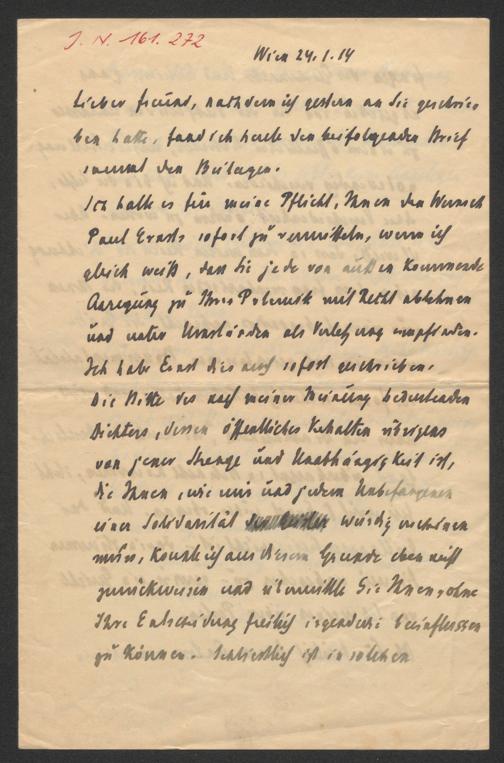 J. N. 161.272
Wien 24.1.14
Lieber Freund, nachdem ich gestern an Sie geschrie
ben hatte, fand ich heute den beifolgenden Brief
sammt den Beilagen.
Ich halte es für meine Pflicht, Ihnen den Wunsch
Paul Ernsts sofort zu vermitteln, wenn ich
gleich weiß, dass Sie jede von außen kommende
Anregung zu Ihrer Polemik mit Recht ablehnen
und unter Umständen als Verletzung empfinden.
Ich habe Ernst dies auch sofort geschrieben.
Die Bitte des nach meiner Meinung bedeutenden
Dichters, dessen öffentliches Verhalten übrigens
von jener Strenge und Unabhängigkeit ist,
die Ihnen, wie mir und jedem Unbefangenen
einer Solidarität würdig erscheinen
muss, konnte ich aus diesem Grunde eben nicht
zurückweisen und übermittle Sie Ihnen, ohne
Ihre Entscheidung freilich irgendwie beeinflussen
zu können. Schliesslich ist in solchen